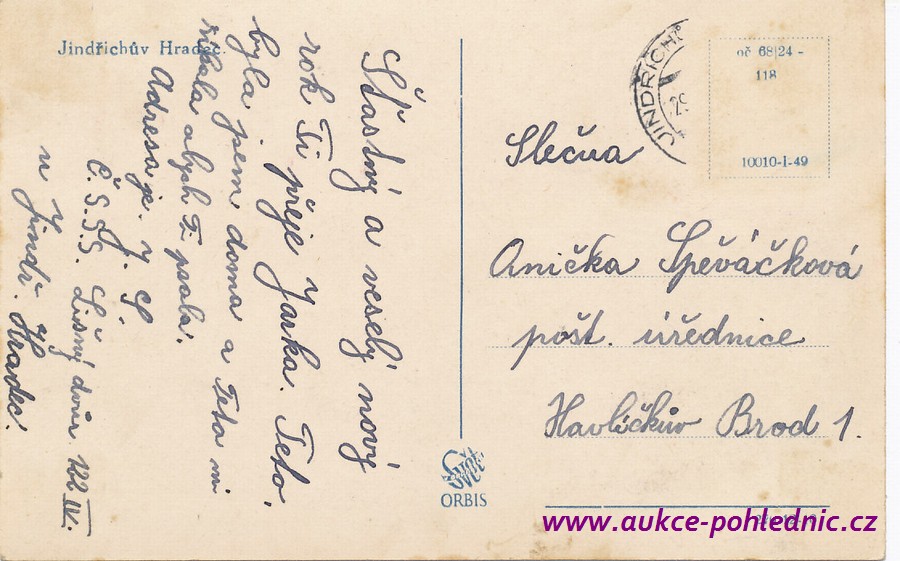 Jindřichův Hradec.
Šťastný a veselý nový
rok Ti přeje Jarka. Teto,
byla jsem doma a Teta mi
říkala abych Ti psala.
Adresa je. J. S.
Č. S. S. S. Lišný dvůr 122 IV.
u Jindř. Hradec.
JINDŘICH
29
oč 68|24 -
118
10010-I-49
Slečna
Anička Spěváčková
pošt. úřednice
Havlíčkův Brod 1.
ORBIS
www.aukce-pohlednic.cz